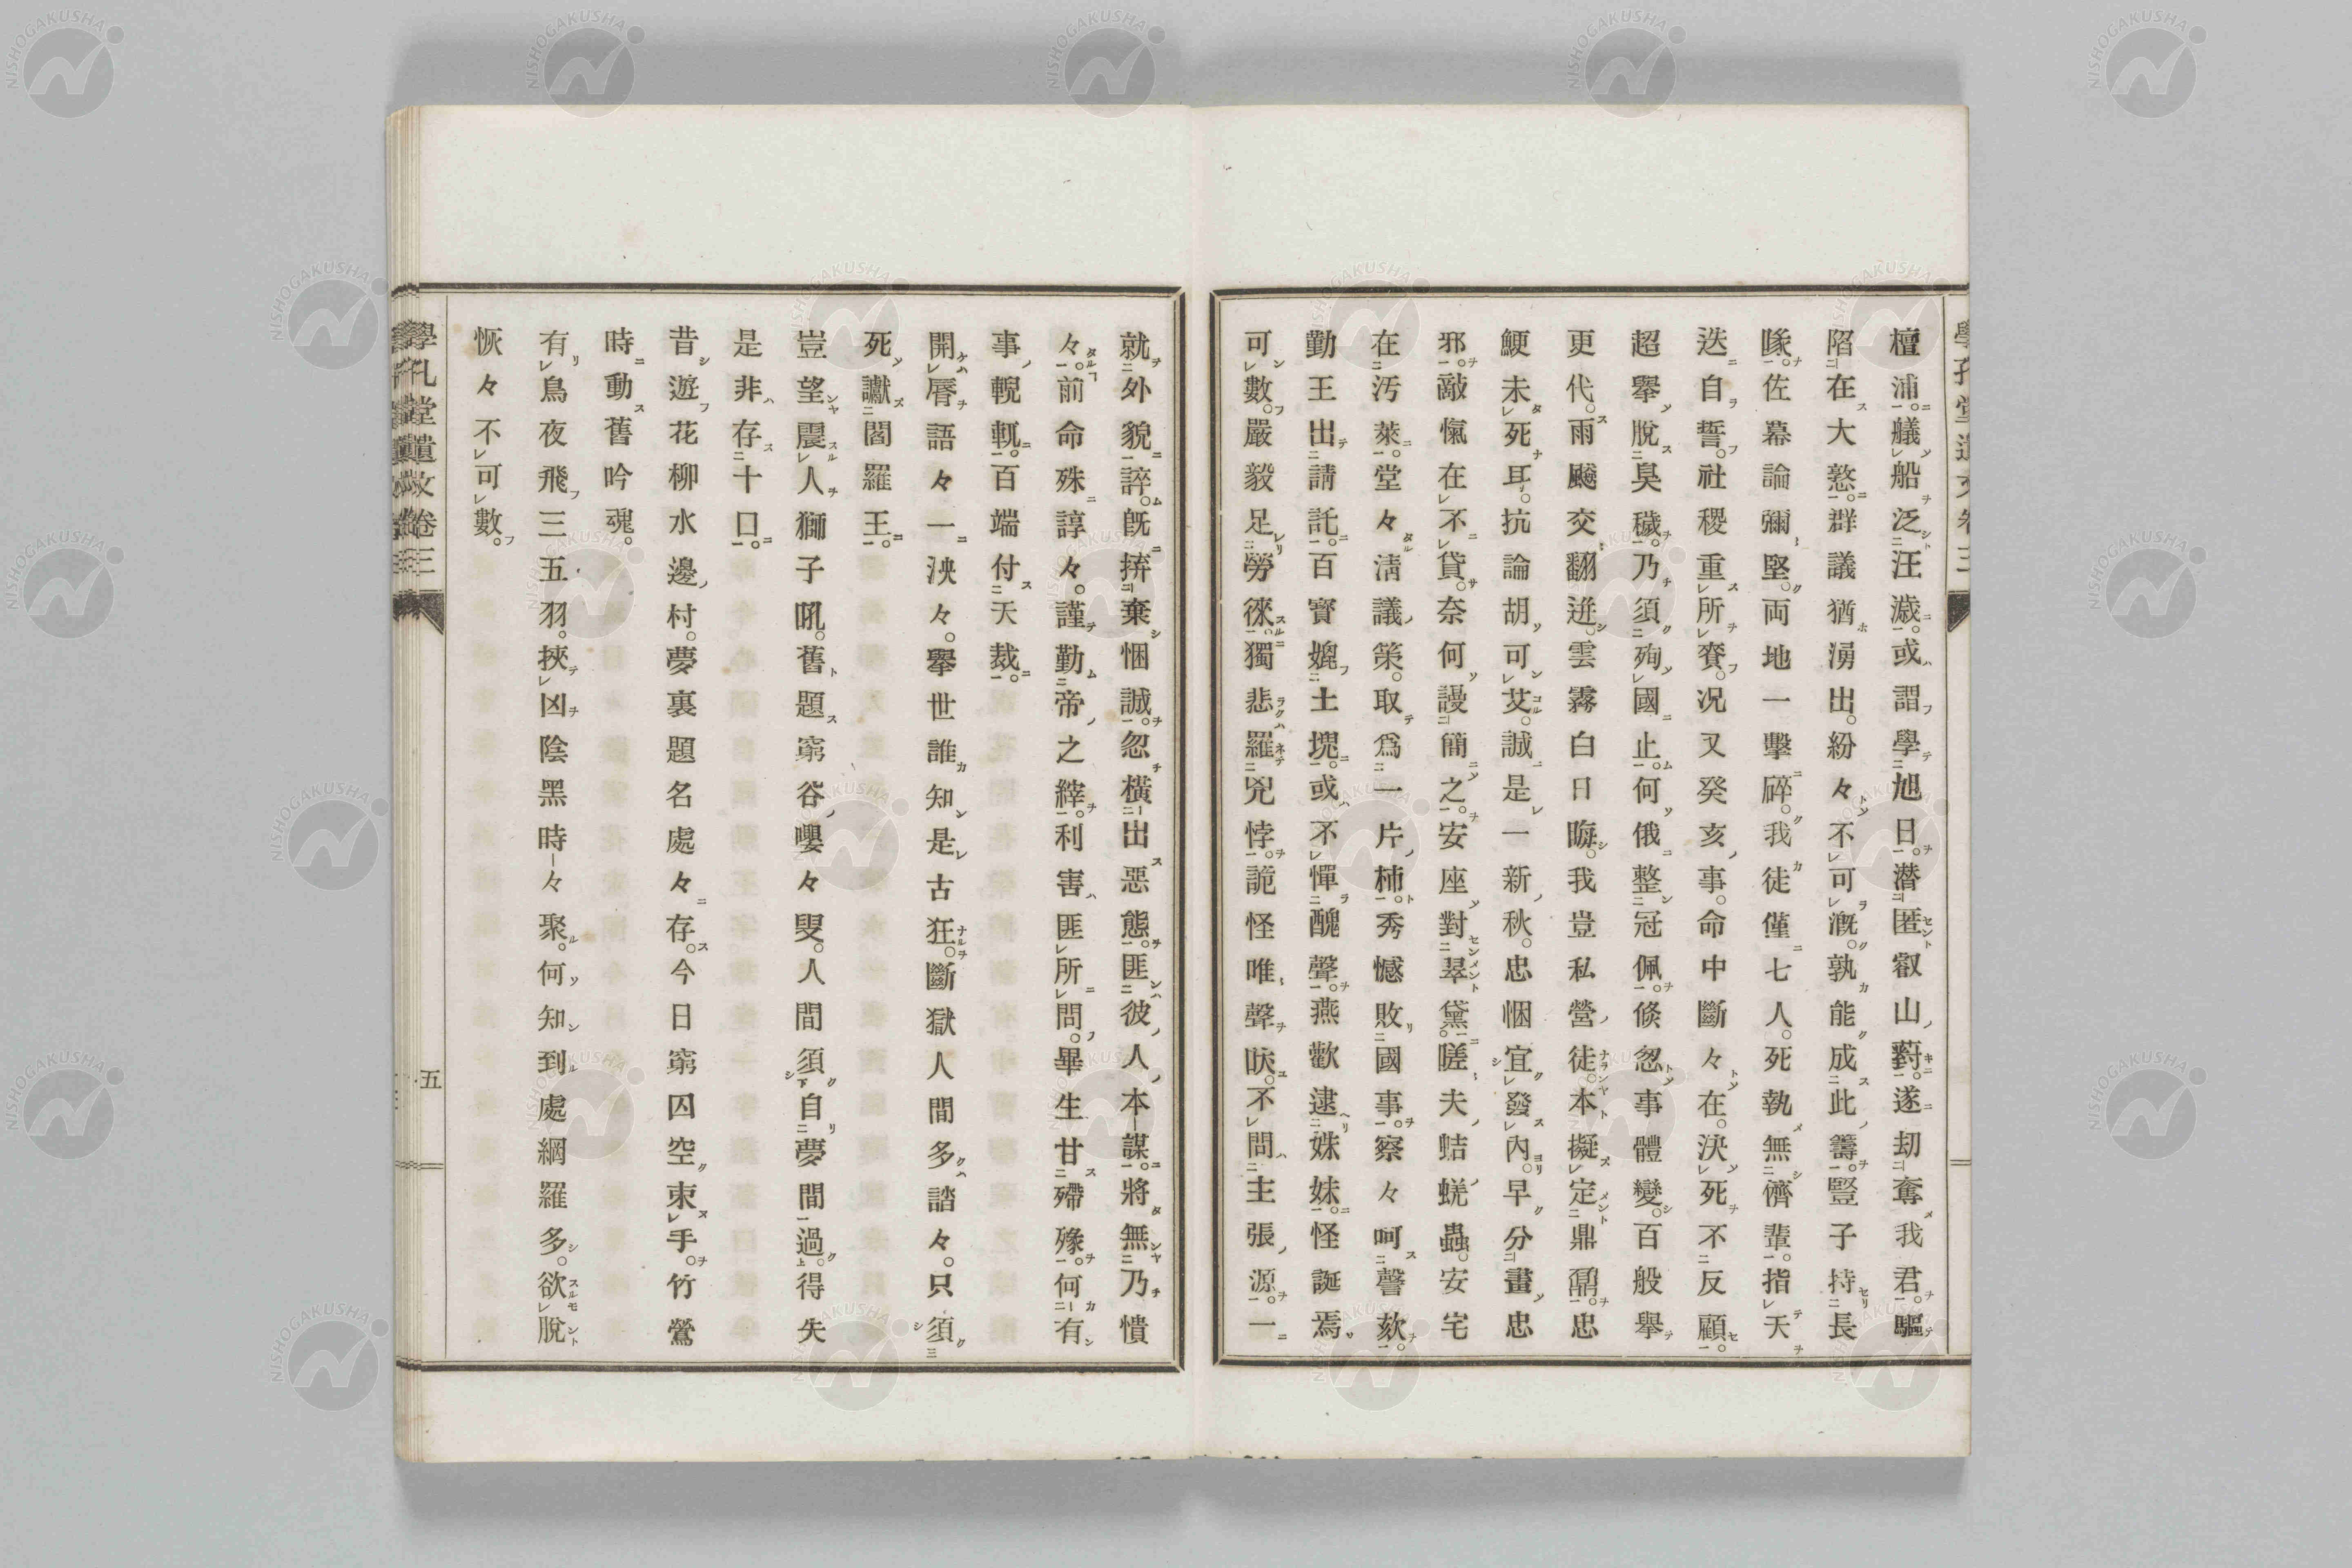 檀浦。艤船泛汪濊。或謂學旭日。潜匿叡山麓。遂刧奪我君。驅
陷在大憝。群議猶湧出。紛々不可漑。孰能成此籌。豎子持長
隊。佐幕論彌堅。両地一擊碎。我徒僅七人。死執無儕輩。指天
迭自誓。社稷重所賚。况又癸亥事。命中斷々在。決死不反顧。
超擧脫臭穢。乃須殉國止。何俄整冠佩。倐忽事體變。百般擧
更代。雨飈交翻逬。雲霧白日晦。我豈私營徒。本擬定鼎鼐。忠
鯁未死耳。抗論胡可艾。誠是一新秋。忠悃宜發內。早分畫忠
邪。敵愾在不貸。奈何謾簡之。安座對翠黛。嗟夫蛣蜣蟲。安宅
在汚萊。堂々淸議策。取爲一片柿。秀憾敗國事。察々呵謦欬。
勤王出請託。百寳媲土塊。或不憚醜聲。燕歡逮姝妹。怪誕焉
可數。嚴毅足勞徠。獨悲羅兇悖。詭怪唯聲吠。不問主張源。一
就外貌誶。旣擠棄悃誠。忽橫出惡態。匪彼人本謀。將無乃憒
々。前命殊諄々。謹勤帝之縡。利害匪所問。畢生甘殢殩。何有
事輗軏。百端付天裁。
開脣語々一泱々。擧世誰知是古狂。斷獄人間多諮々。只須
死讞閻羅王。
豈望震人獅子吼。舊題窮谷嚶々叟。人間須自夢間過。得失
是非存十口。
昔遊花柳水邊村。夢裏題名處々存。今日窮囚空束手。竹鶯
時動舊吟魂。
有鳥夜飛三五羽。挾凶陰黑時々聚。何知到處網羅多。欲脫
恢々不可數。
學孔堂遺文卷三
五
NISHOGAKUSHA